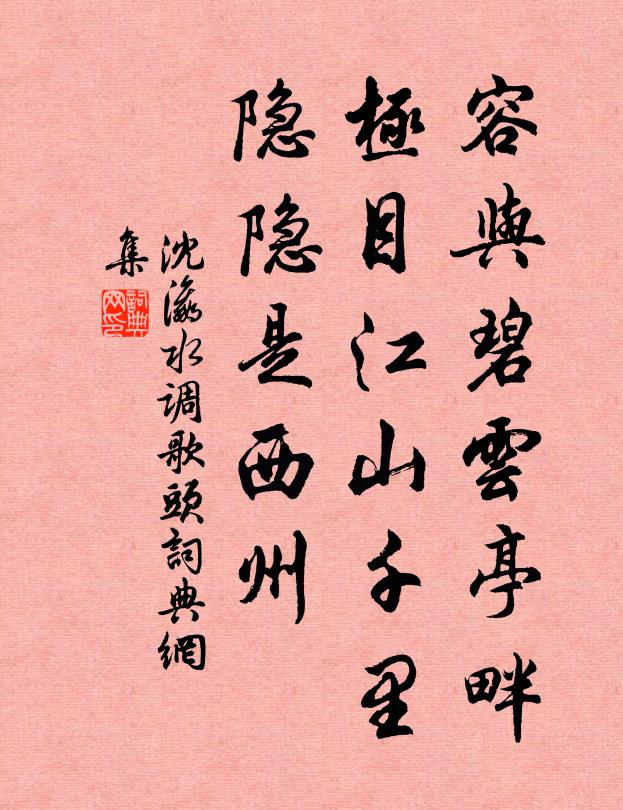 容與碧雲亭畔
極目江山千里
隐隐是西州
沈瀛水调歌頭詞典網
集
詞典
网印